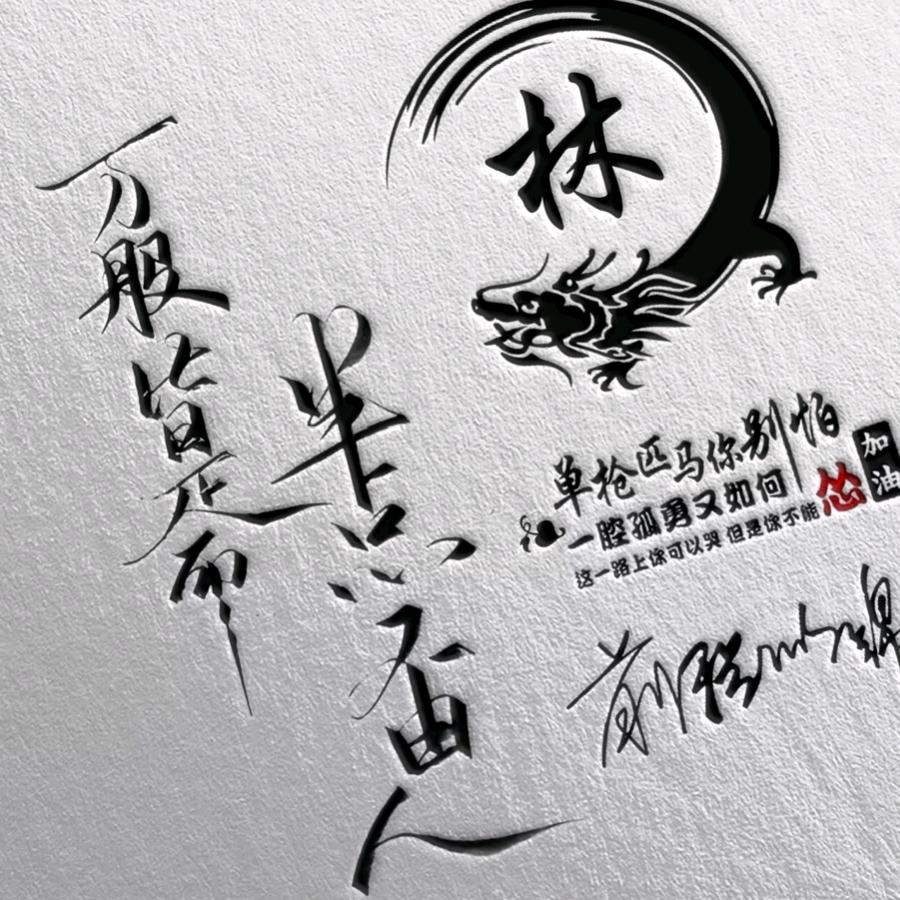 林
万般皆是命
半点不由人
单枪匹马你别怕
一腔孤勇又如何
这一路上你可以哭 但是你不能怂
加油
前程似锦